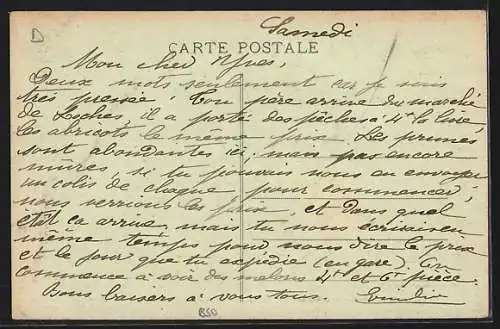 D
Samedi
CARTE POSTALE
Mon cher Yves,
Deux mots seulement car je suis
très pressé. Ton père arrive du marché
de Loches, il a porté des pêches à 4f le livre
les abricots le même prix. Les prunes
sont abondantes ici, mais pas encore
mûres. si tu pouvais nous en envoyer
un colis de chaque pour commencer,
nous verrions les prix, et dans quel
état ça arrive. mais tu nous écrirais en
même temps pour nous dire le prix
et le jour que tu expédie (en gare) On
commence à voir des melons 4f et 6f pièce.
Bons baisers à vous tous.